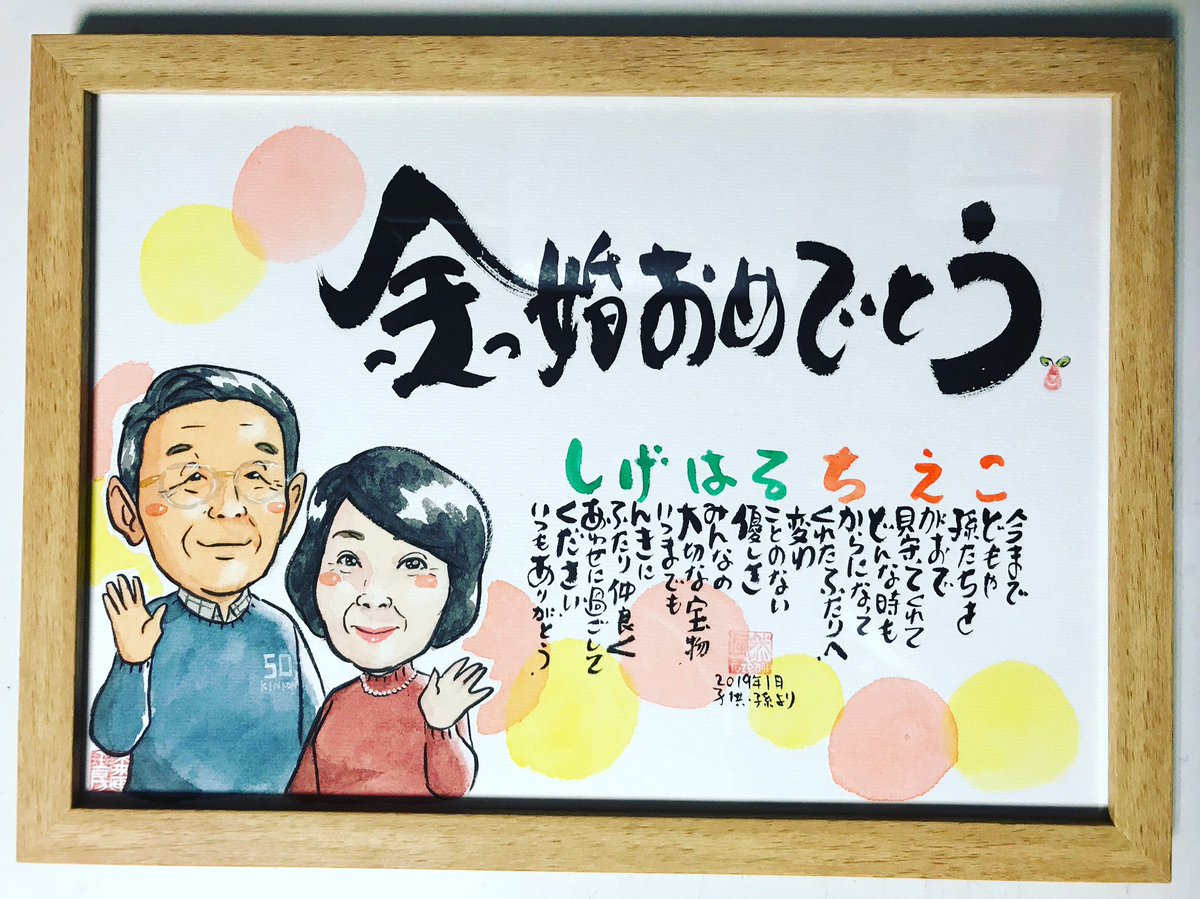 金婚おめでとう
しげはるちえこ
今まで
どもや
孫たちを
がおで
見守ってくれて
どんな時も
からになって
くれたふたりへ
変わ
ことのない
優しさ
みんなの
大切な宝物
いつまでも
んきに
ふたり仲良く
あわせに過ごして
ください
いつもありがとう
2019年1月
子供・孫より
50
KINKON